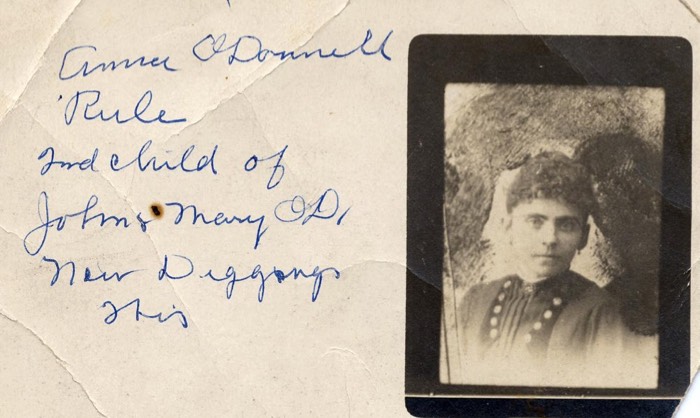 Anna O'Donnell
Rule
2nd child of
John & Mary O'D.
New Diggongs
Wis